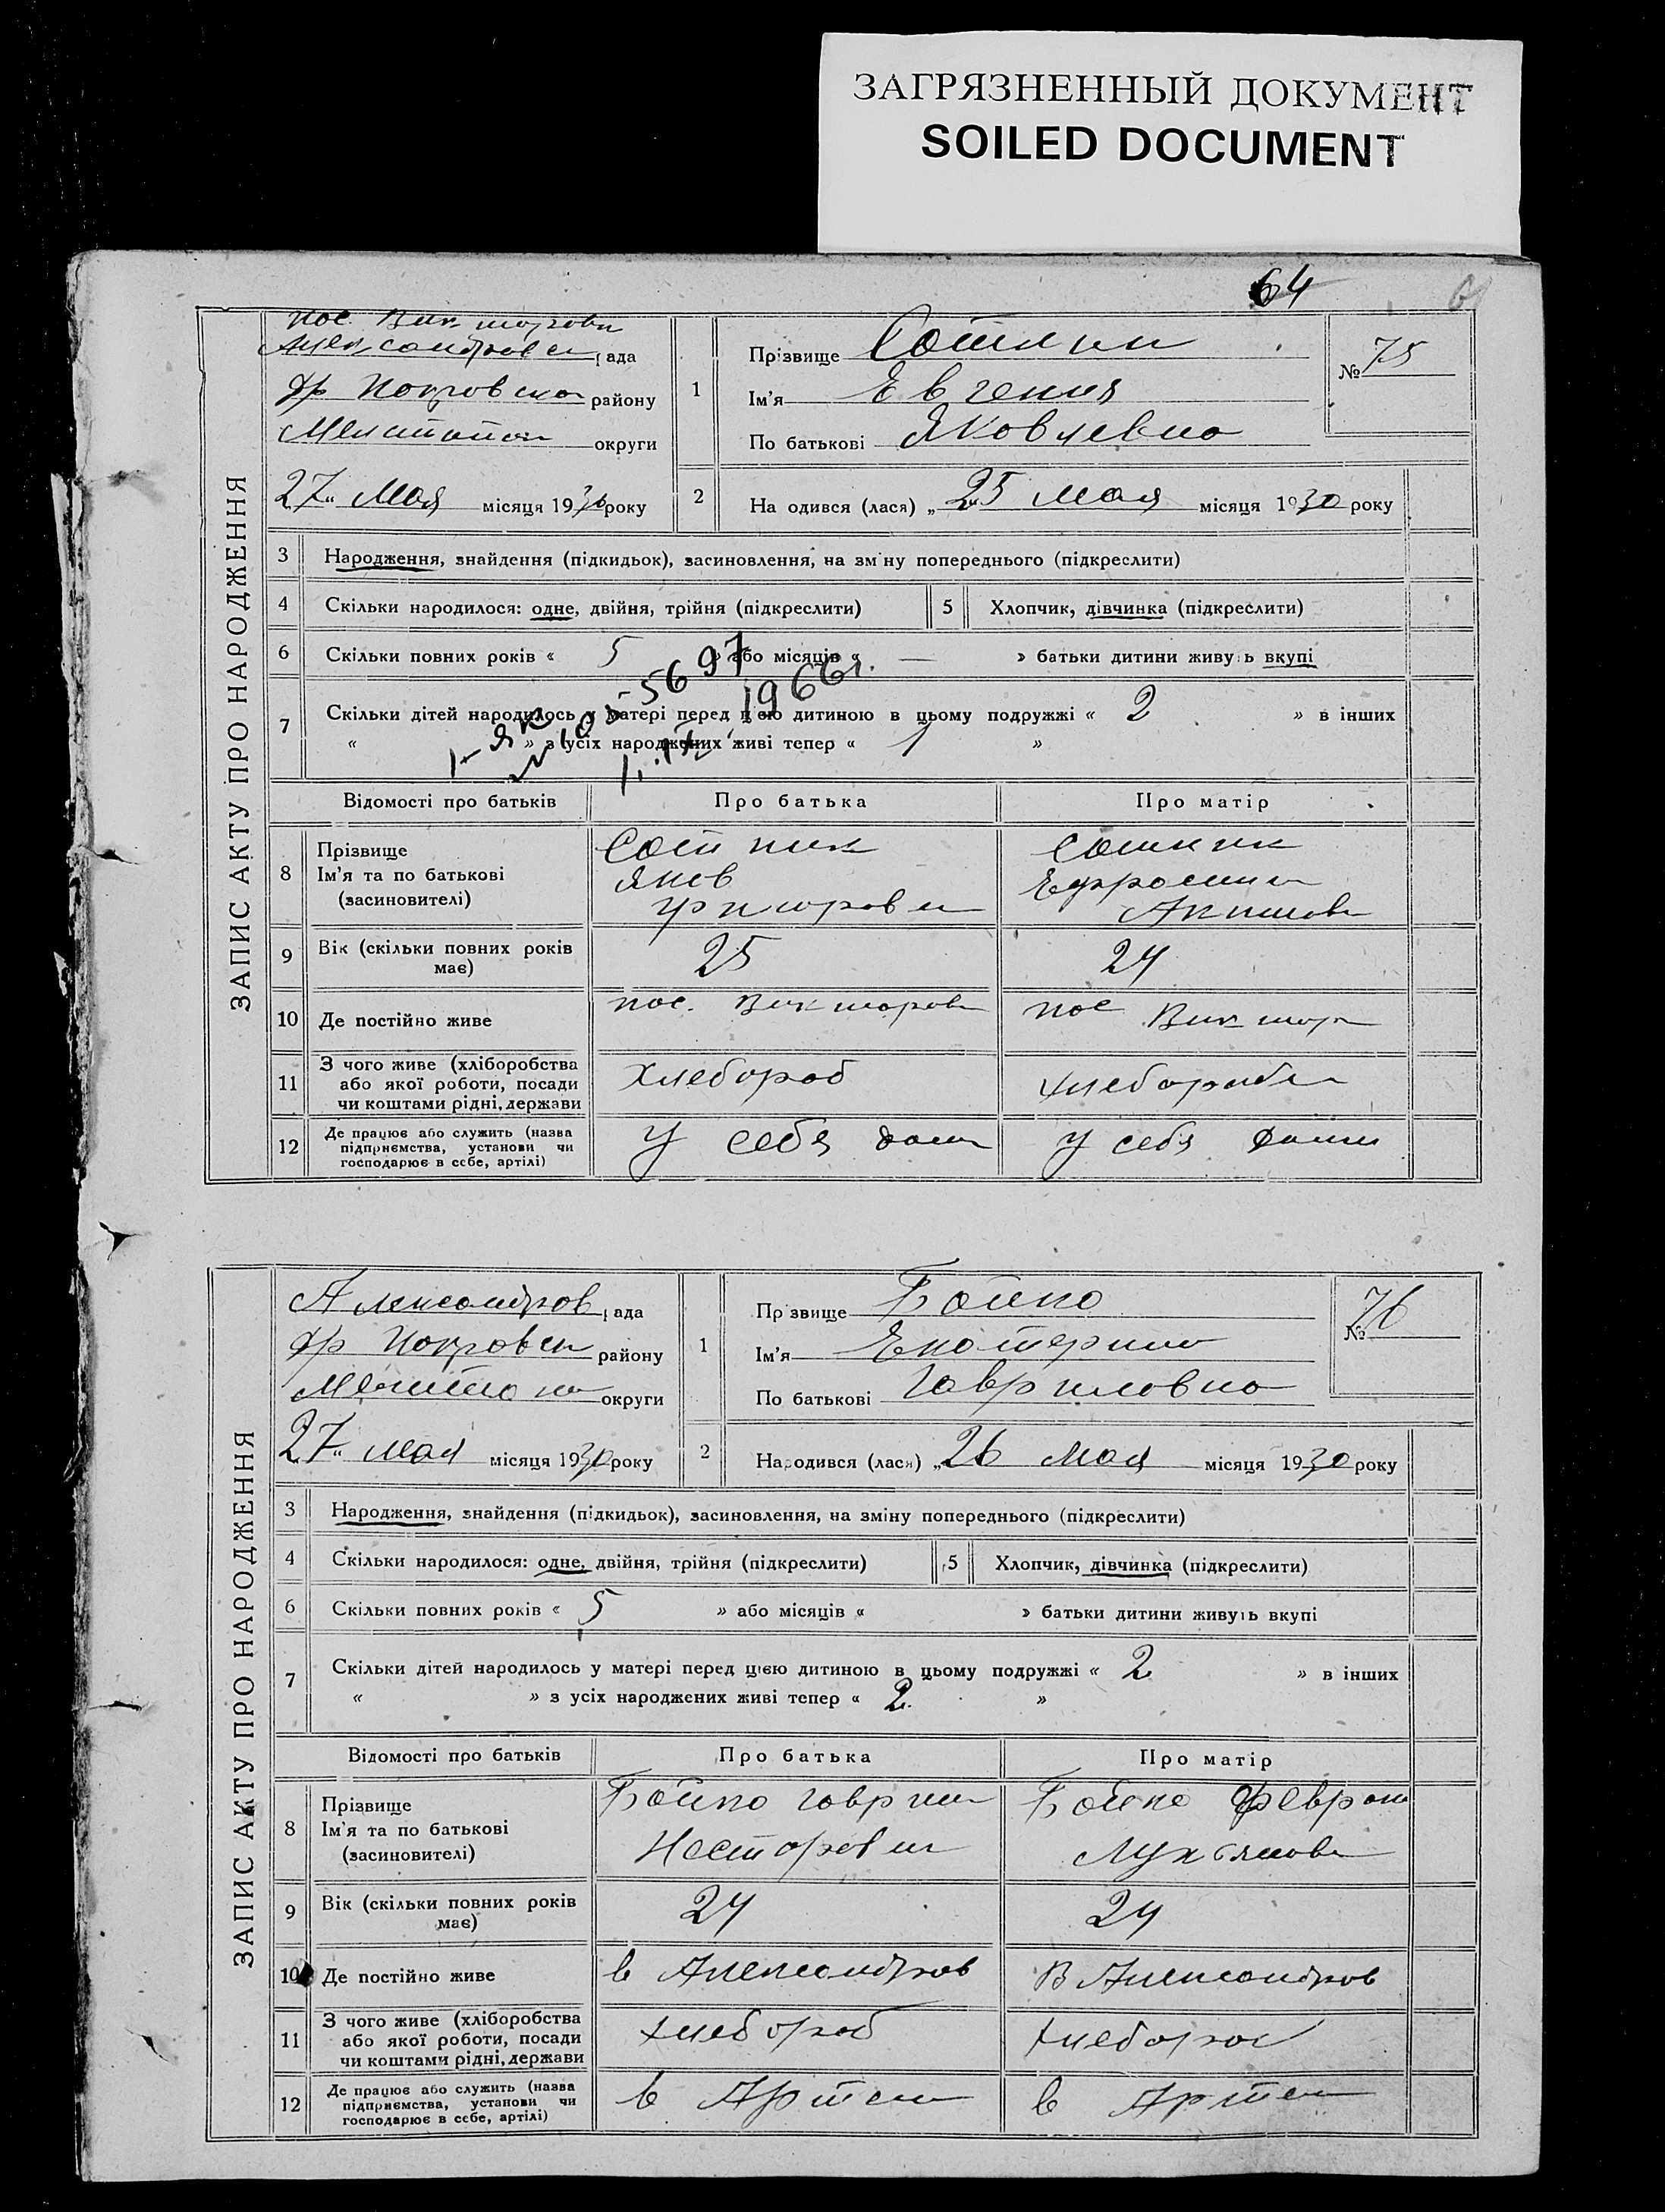 ЗАГРЯЗНЕННЫЙ ДОКУМЕНТ
SOILED DOCUMENT
64
ЗАПИС АКТУ ПРО НАРОДЖЕННЯ
пос. Викторовк
рада
району
округи
27 " Мая місяця 1930 року
1
Прізвище Сотник
Ім'я Евгения
По батькові Яковлевна
№ 75
2 На одився (лася) „ 25 мая місяця 1930 року
3 Народження, знайдення (підкидьок), засиновлення, на зміну попереднього (підкреслити)
4 Скільки народилося: одне, двійня, трійня (підкреслити)
5 Хлопчик, дівчинка (підкреслити)
6 Скільки повних років « 5 » або місяців « — » батьки дитини живуть вкупі
7 Скільки дітей народилось у матері перед цією дитиною в цьому подружжі « 2 » в інших
« » з усіх народжених живі тепер « 1 »
1-ЯК
№ 105-5697
1966г.
Відомості про батьків Про батька Про матір
8 Прізвище
Ім'я та по батькові
(засновителі)
Сотник
Яков
Сотник
9 Вік (скільки повних років
має)
25 24
10 Де постійно живе пос. Викторовк пос Виктор
11 З чого живе (хліборобства
або якої роботи, посади
чи коштами рідні, держави
Хлебороб
12 Де працює або служить (назва
підприємства, установи чи
господарює в себе, артілі)
у себя дома у себя дома
ЗАПИС АКТУ ПРО НАРОДЖЕННЯ
Александров рада
др Покровск району
округи
27 " мая місяця 1930 року
1
Прізвище Бойко
Ім'я Екатерина
По батькові Гавриловна
№ 76
2 Народився (лася) „ 26 мая місяця 1930 року
3 Народження, знайдення (підкидьок), засиновлення, на зміну попереднього (підкреслити)
4 Скільки народилося: одне, двійня, трійня (підкреслити)
5 Хлопчик, дівчинка (підкреслити)
6 Скільки повних років « 5 » або місяців « » батьки дитини живуть вкупі
7 Скільки дітей народилось у матері перед цією дитиною в цьому подружжі « 2 » в інших
« » з усіх народжених живі тепер « 2 »
Відомості про батьків Про батька Про матір
8 Прізвище
Ім'я та по батькові
(засиновителі)
Бойко Гаврил
Несторов
Бойко Феврон
Лукьянов
9 Вік (скільки повних років
має)
24 24
10 Де постійно живе в Александров В Александров
11 З чого живе (хліборобства
або якої роботи, посади
чи коштами рідні, держави
хлебороб хлебороб
12 Де працює або служить (назва
підприємства, установи чи
господарює в себе, артілі)
в Артели в Артели